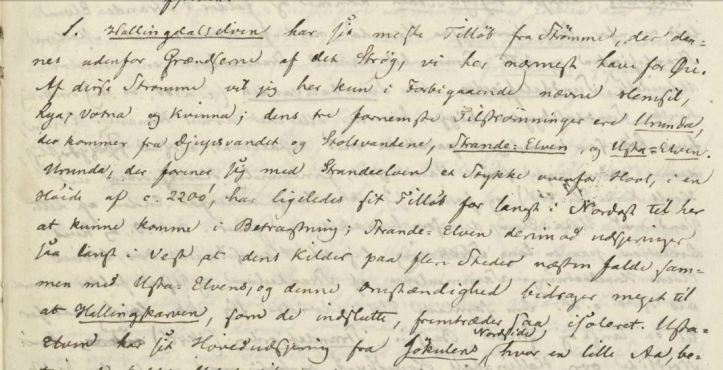 1. Hallingdalselven har sit meste Tilløb fra Strømme, der dan=
nes udenfor Grændserne af det Strøg, vi her nærmest have for Øie.
Af disse Strømme vil jeg her kun i Forbigaaende nævne Hemsil,
Rya, Votna og Kvinna; dens tre fornemste Tilstrømninger ere Urunda,
der kommer fra Djupsvandet og Stolsvandene, Strande=Elven, og Usta=Elven.
Urunda, der forener sig med Strandeelven et Stykke ovenfor Hool, i en
Høide af c. 2200', har ligeledes sit Tilløb for langt i Nordost til her
at kunne komme i Betragtning; Strande=Elven derimod udspringer
saa langt i Vest at dens Kilder paa flere Steder næsten falde sam=
men med Usta=Elvens, og denne Omstændighed bidrager meget til
at Hallingskarven, som de indslutte, fremtræder saa isoleret. Usta=
Elven har sit Hovedudspring fra Jøkulens Nordside, hvor en lille Aa, be=